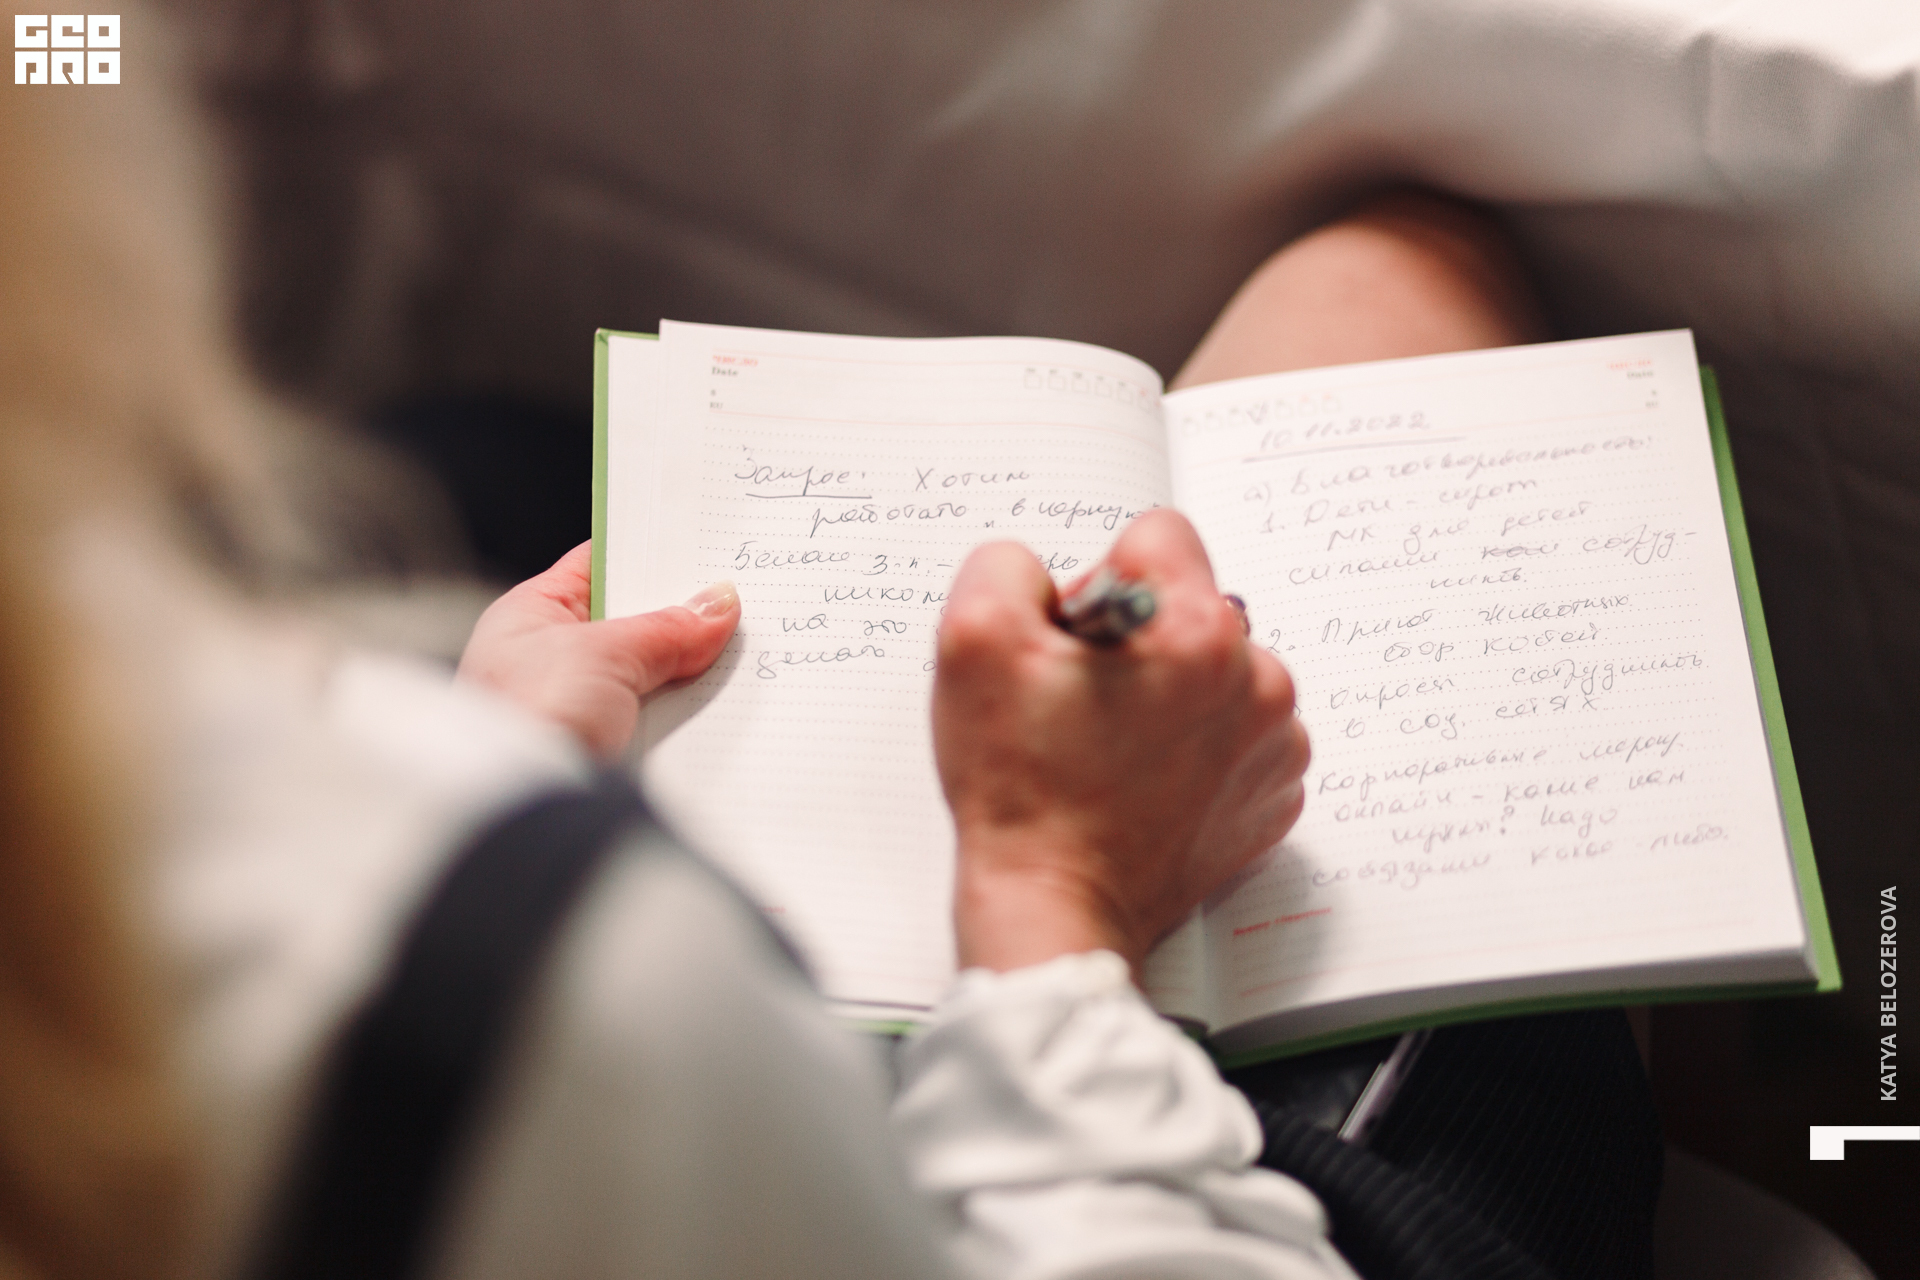 GEO
PRO
Date
Запрос: Хотим
работать в черную
Белая з.п. –
на это
делать
Date
10.11.2022
а) Благотворительность:
1. Дети - сирот
МК для детей
силами сотруд-
2. Приют животных
сбор
опрос сотрудников
в соц. сетях
корпоративные мероц.
онлайн - какие нам
нужны? Надо
какое-либо.
KATYA BELOZEROVA